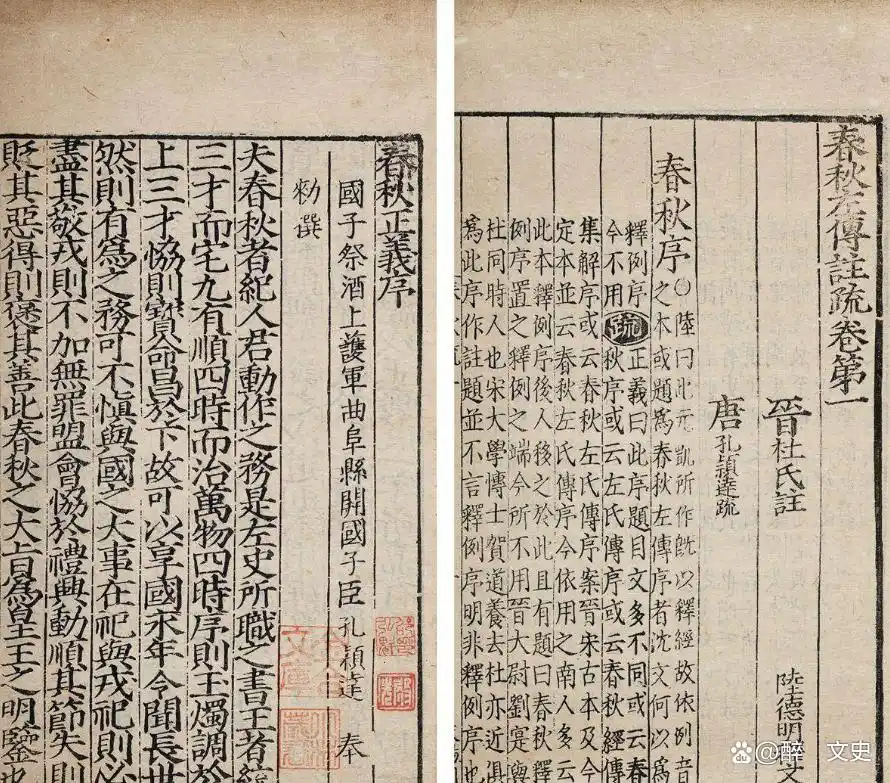 春秋正義序
國子祭酒上護軍曲阜縣開國子臣孔穎達奉
勑撰
夫春秋者紀人君動作之務是左史所職之書王者統
三才而宅九有順四時而治萬物四時序則玉燭調於
上三才恊則寶命昌於下故可以享國永年令聞長世
然則有爲之務可不慎與國之大事在祀與戎祀則必
盡其敬戎則不加無罪盟會恊於禮興動順其節失則
貶其惡得則襃其善此春秋之大旨爲皇王之明鑒也
春秋左傳註疏卷第一
晉杜氏註
陸德明
唐孔穎達疏
春秋序
○陸曰此元凱所作旣以釋經故依例音
之本或題爲春秋左傳序者沈文何以爲
釋例序
今不用
疏
正義曰此序題目文多不同或云春
秋序或云左氏傳序或云春秋經傳
集解序或云春秋左氏傳序案晉宋古本及今
定本並云春秋左氏傳序今依用之南人多云
此本釋例序後人移之於此且有題曰春秋釋
例序置之釋例之端今所不用晉大尉劉寔與
杜同時人也宋大學博士賀道養去杜亦近俱
爲此序作註題並不言釋例序明非釋例序
醉 文史